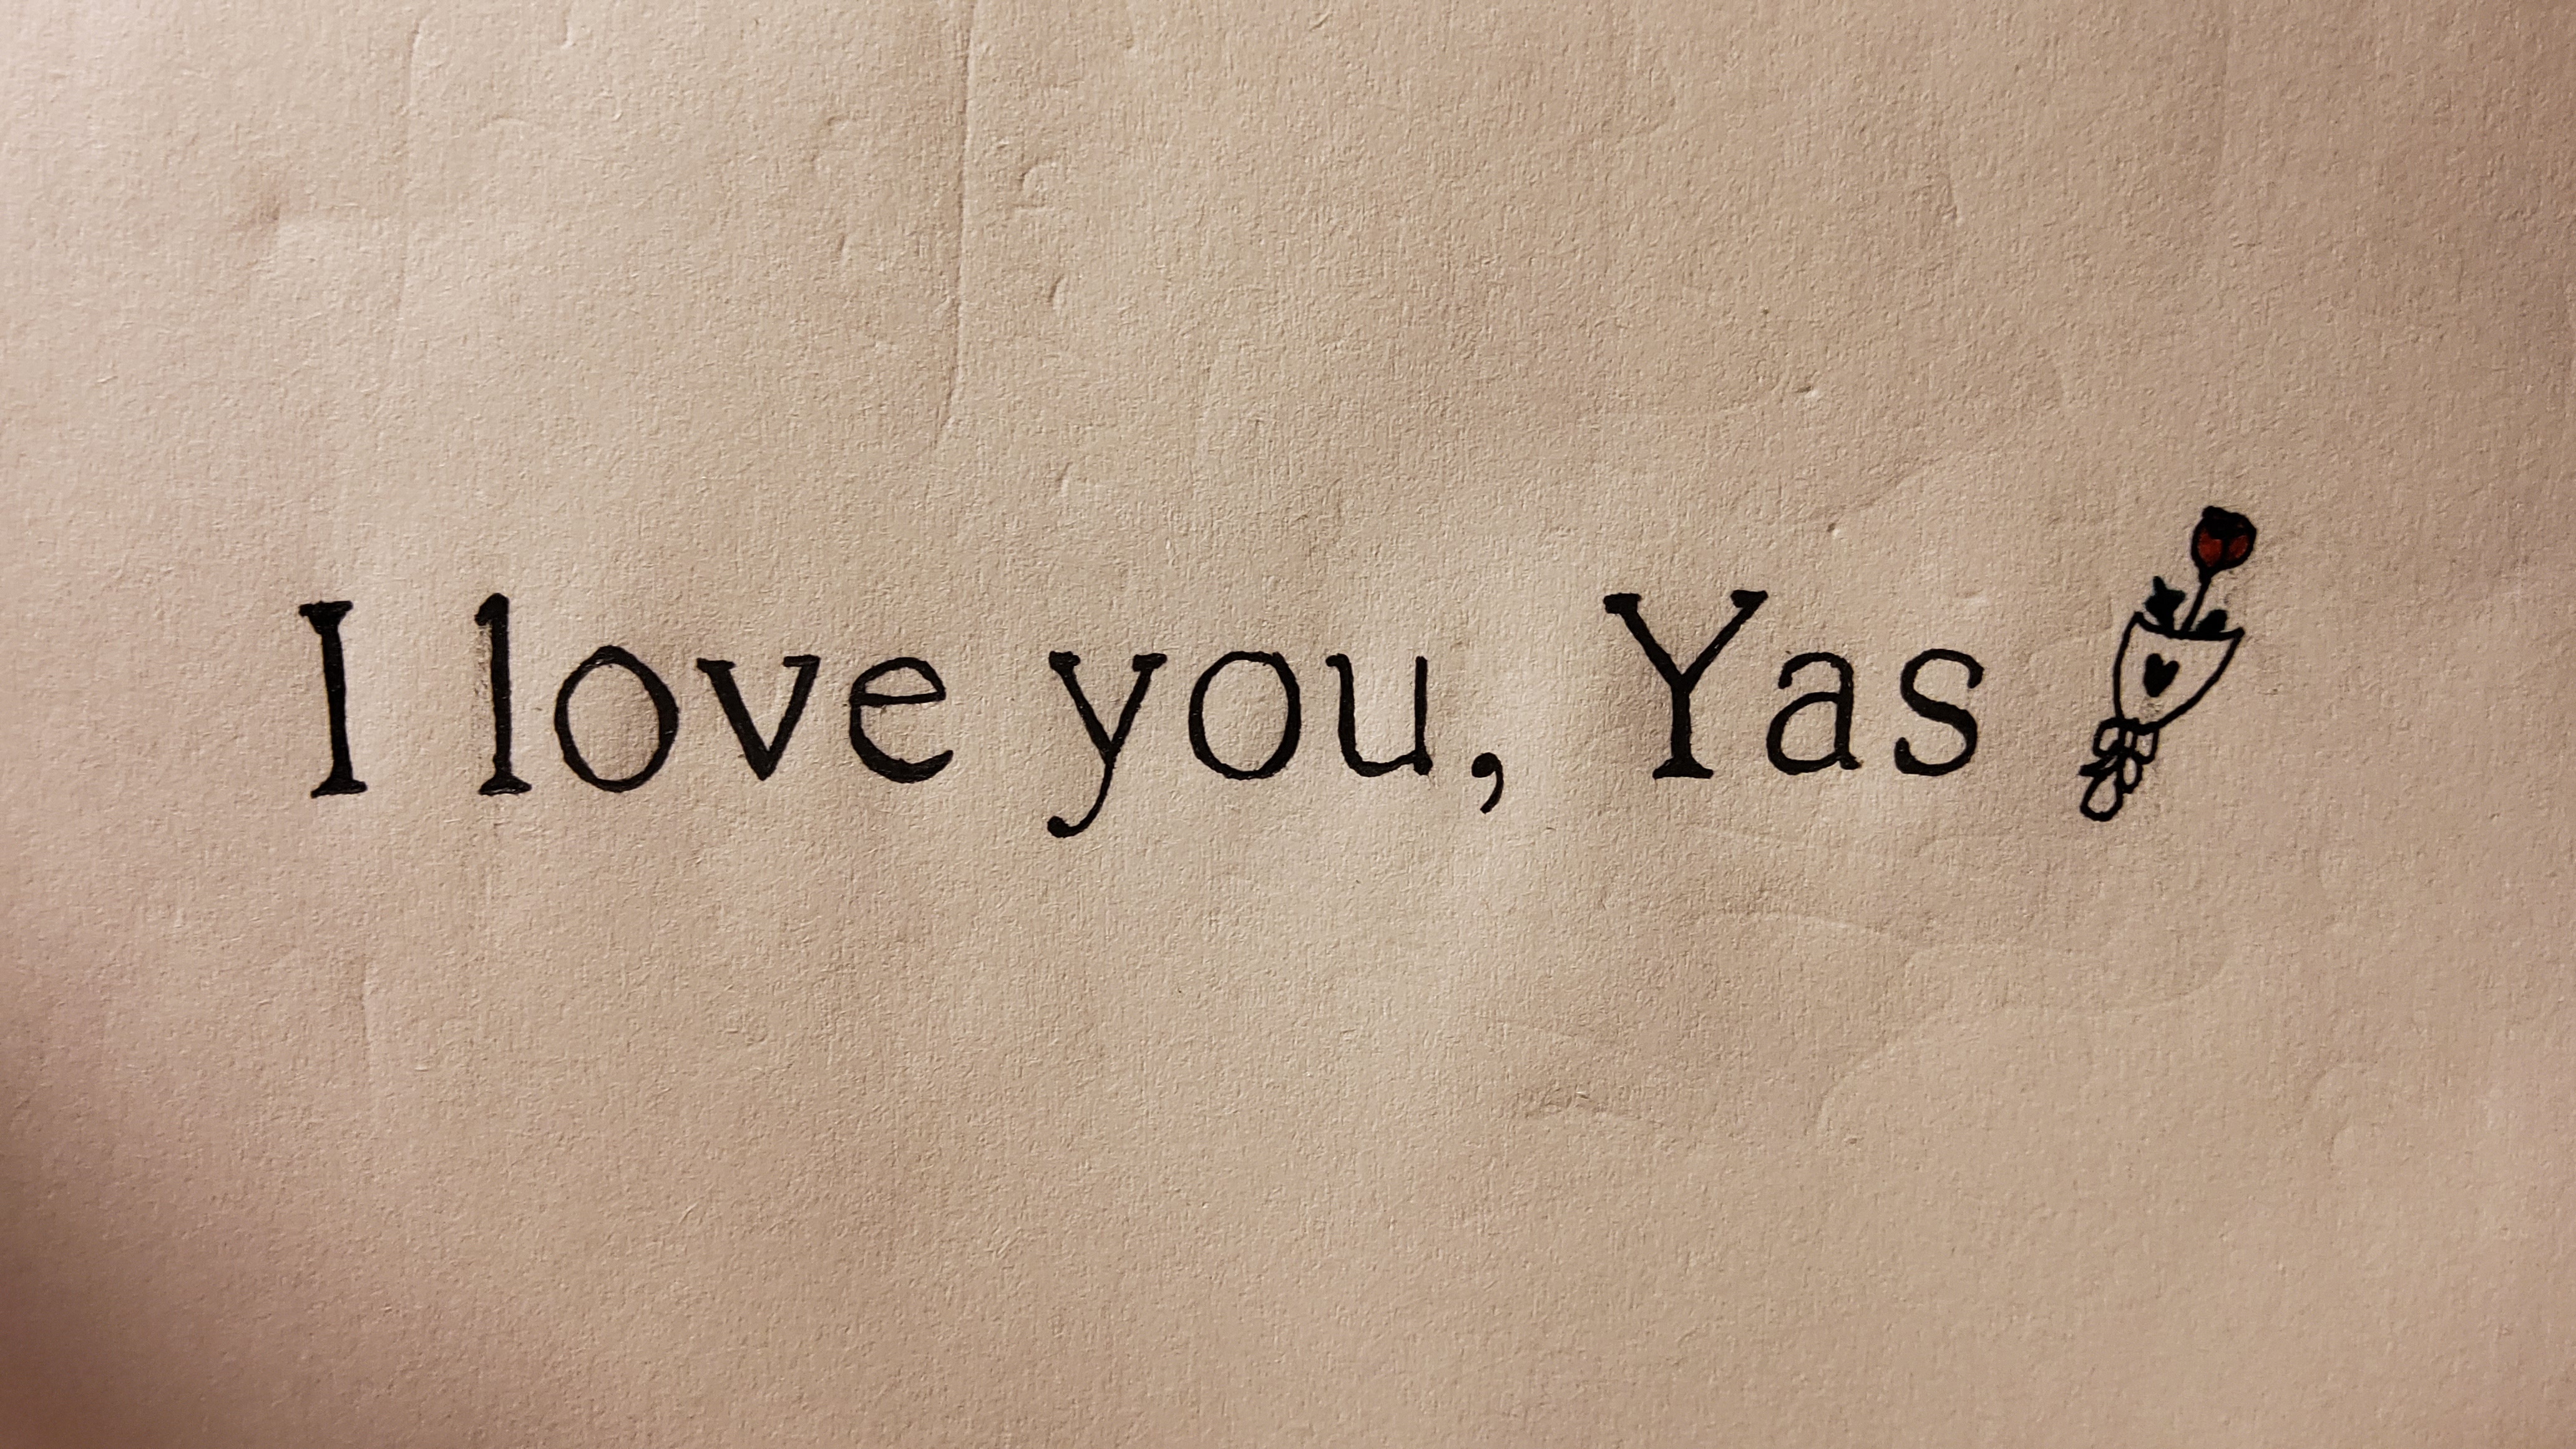 I love you, Yas